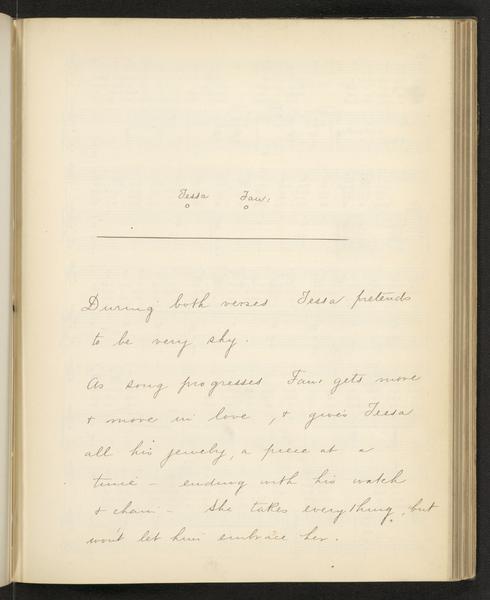 Tessa Fau:
During both verses Tessa pretends
to be very shy.
As song progresses Fau: gets more
& more in love, & gives Tessa
all his jewelry, a piece at a
time – ending with his watch
& chain – She takes everything, but
won't let him embrace her.